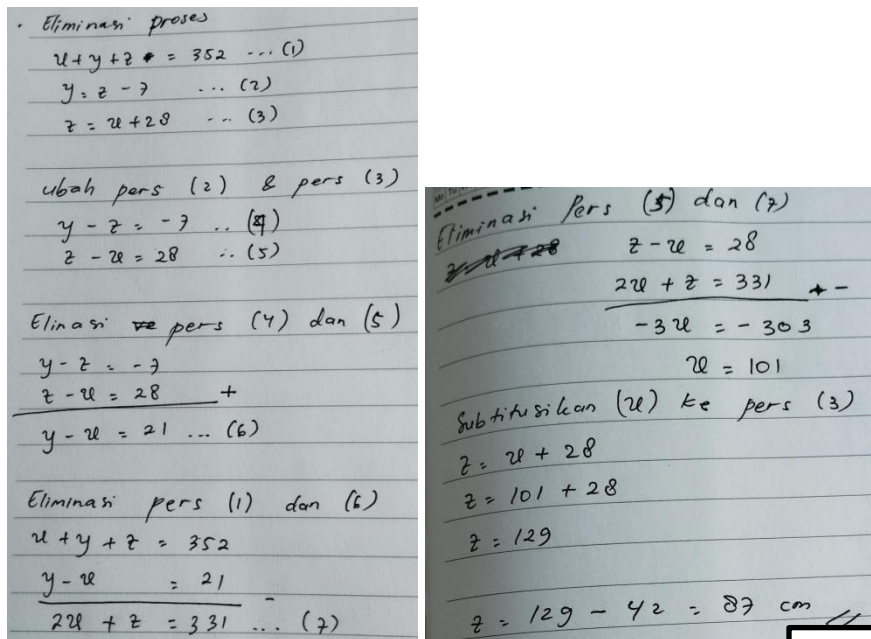 . Eliminasi proses
x+y+z = 352 ... (1)
y = z - 7 ... (2)
z = x + 28 ... (3)
ubah pers (2) & pers (3)
y - z = -7 .. (4)
z - x = 28 .. (5)
Elinasi pers (4) dan (5)
y - z = -7
z - x = 28 +
y - x = 21 ... (6)
Eliminasi pers (1) dan (6)
x + y + z = 352
y - x = 21 -
2x + z = 331 ... (7)
Eliminasi Pers (5) dan (7)
z - x = 28
2x + z = 331 -
-3x = -303
x = 101
Subtitusikan (x) ke pers (3)
z = x + 28
z = 101 + 28
z = 129
z = 129 - 42 = 87 cm